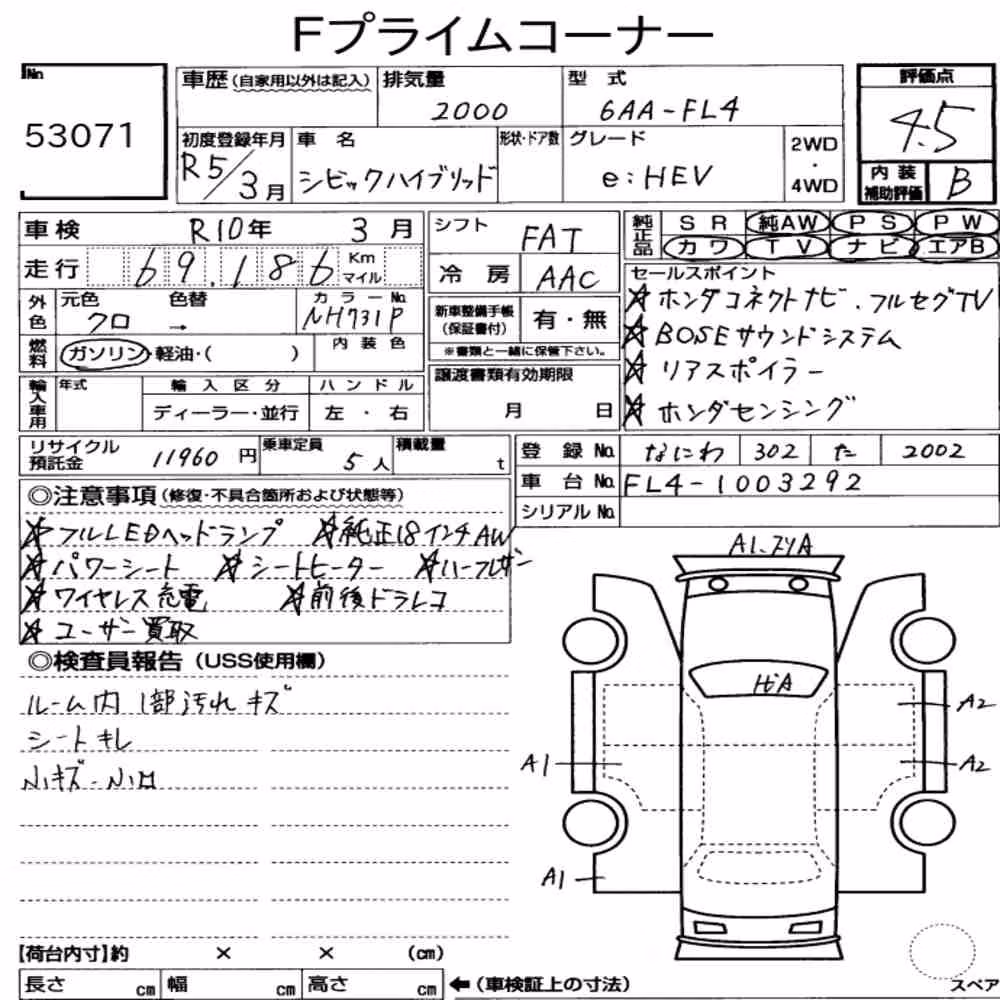 Fプライムコーナー
No.
53071
車歴(自家用以外は記入) 排気量 型式
2000 6AA-FL4
評価点
4.5
内装補助評価 B
初度登録年月 車名 形状・ドア数 グレード
R5/3月 シビックハイブリッド e:HEV
2WD・4WD
車検 R10年 3月
走行 69,186 Km マイル
外色 元色 色替 カラーNo.
クロ → NH731P
燃料 ガソリン・軽油・( ) 内装色
輸入車用 年式 輸入区分 ハンドル
ディーラー・並行 左・右
シフト FAT
冷房 AAC
新車整備手帳(保証書付) 有・無
※書類と一緒に保管下さい。
譲渡書類有効期限
月 日
純正品 SR 純AW PS PW
カワ TV ナビ エアB
セールスポイント
☆ホンダコネクトナビ.フルセグTV
☆BOSEサウンドシステム
☆リアスポイラー
☆ホンダセンシング
リサイクル預託金 11960円 乗車定員 5人 積載量 t
登録No. なにわ 302 た 2002
車台No. FL4-1003292
シリアルNo.
◎注意事項(修復・不具合箇所および状態等)
☆フルLEDヘッドランプ ☆純正18インチAW
☆パワーシート ☆シートヒーター ☆ハーフレザー
☆ワイヤレス充電 ☆前後ドラレコ
☆ユーザー買取
◎検査員報告(USS使用欄)
ルーム内 1部汚れ キズ
シートキレ
小キズ・小凹
A1.
A
A2
A1
A2
A1
【荷台内寸】約 × × (cm)
長さ cm 幅 cm 高さ cm ←(車検証上の寸法)
スペア